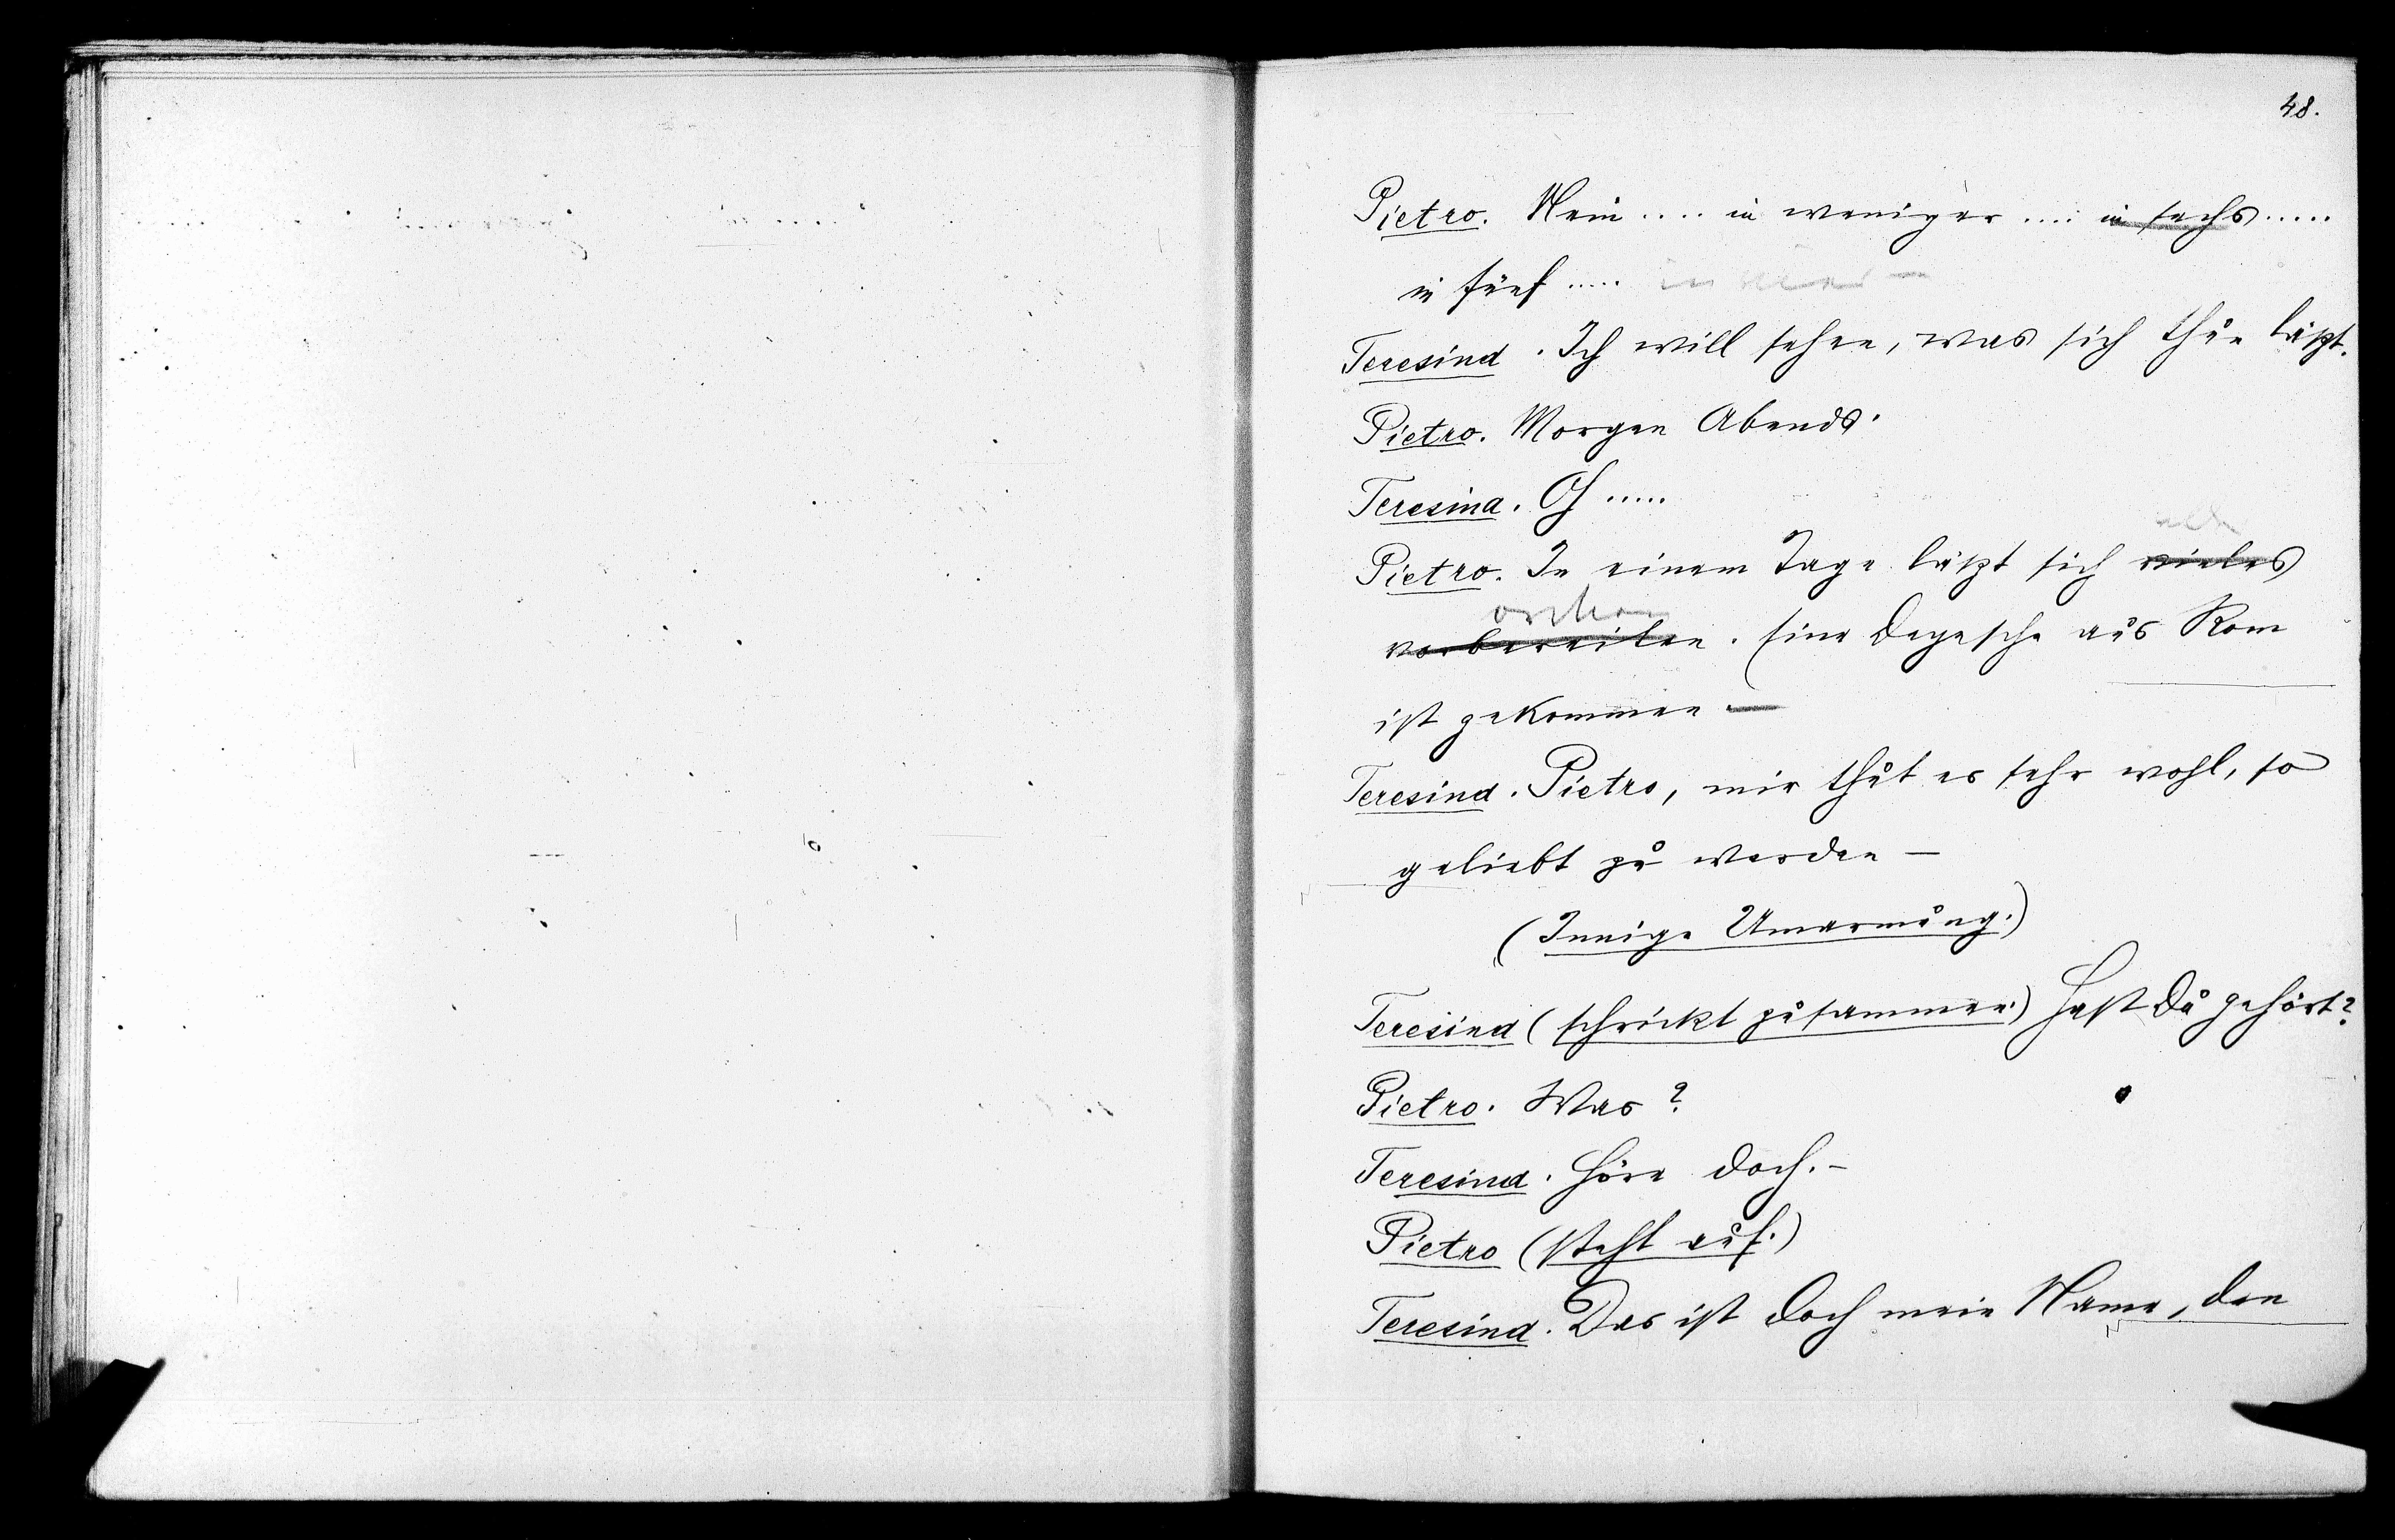 48.
Pietro. Nein .... in weniger .... in sechs .....
in fünf ..... in vier —
Teresina. Ich will sehen, was sich thun läßt.
Pietro. Morgen Abends.
Teresina. Oh .....
Pietro. In einem Tage läßt sich vieles
vorbereiten. Eine Depesche aus Rom
ist gekommen —
Teresina. Pietro, mir thut es sehr wohl, so
geliebt zu werden —
(Innige Umarmung.)
Teresina (schrickt zusammen.) Hast Du gehört?
Pietro. Was?
Teresina. Höre doch. —
Pietro (steht auf.)
Teresina. Das ist doch mein Name, den